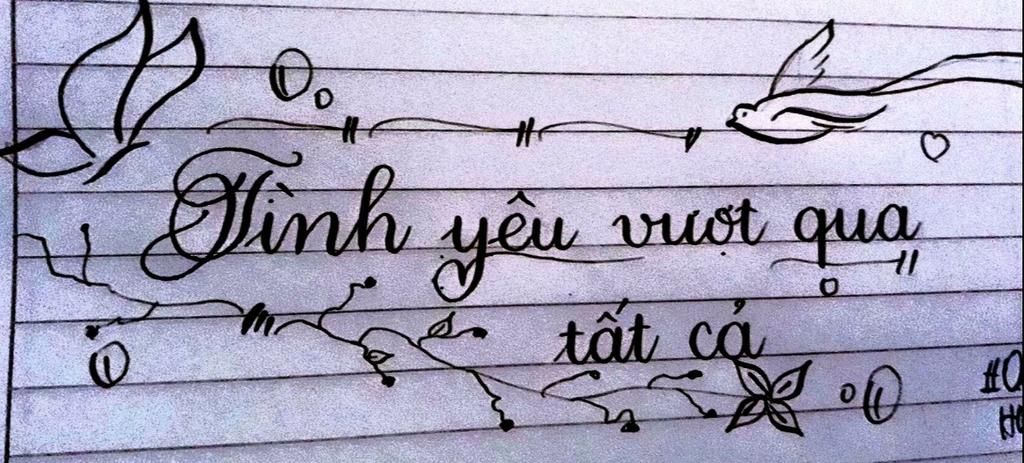 Tình yêu vượt qua
tất cả